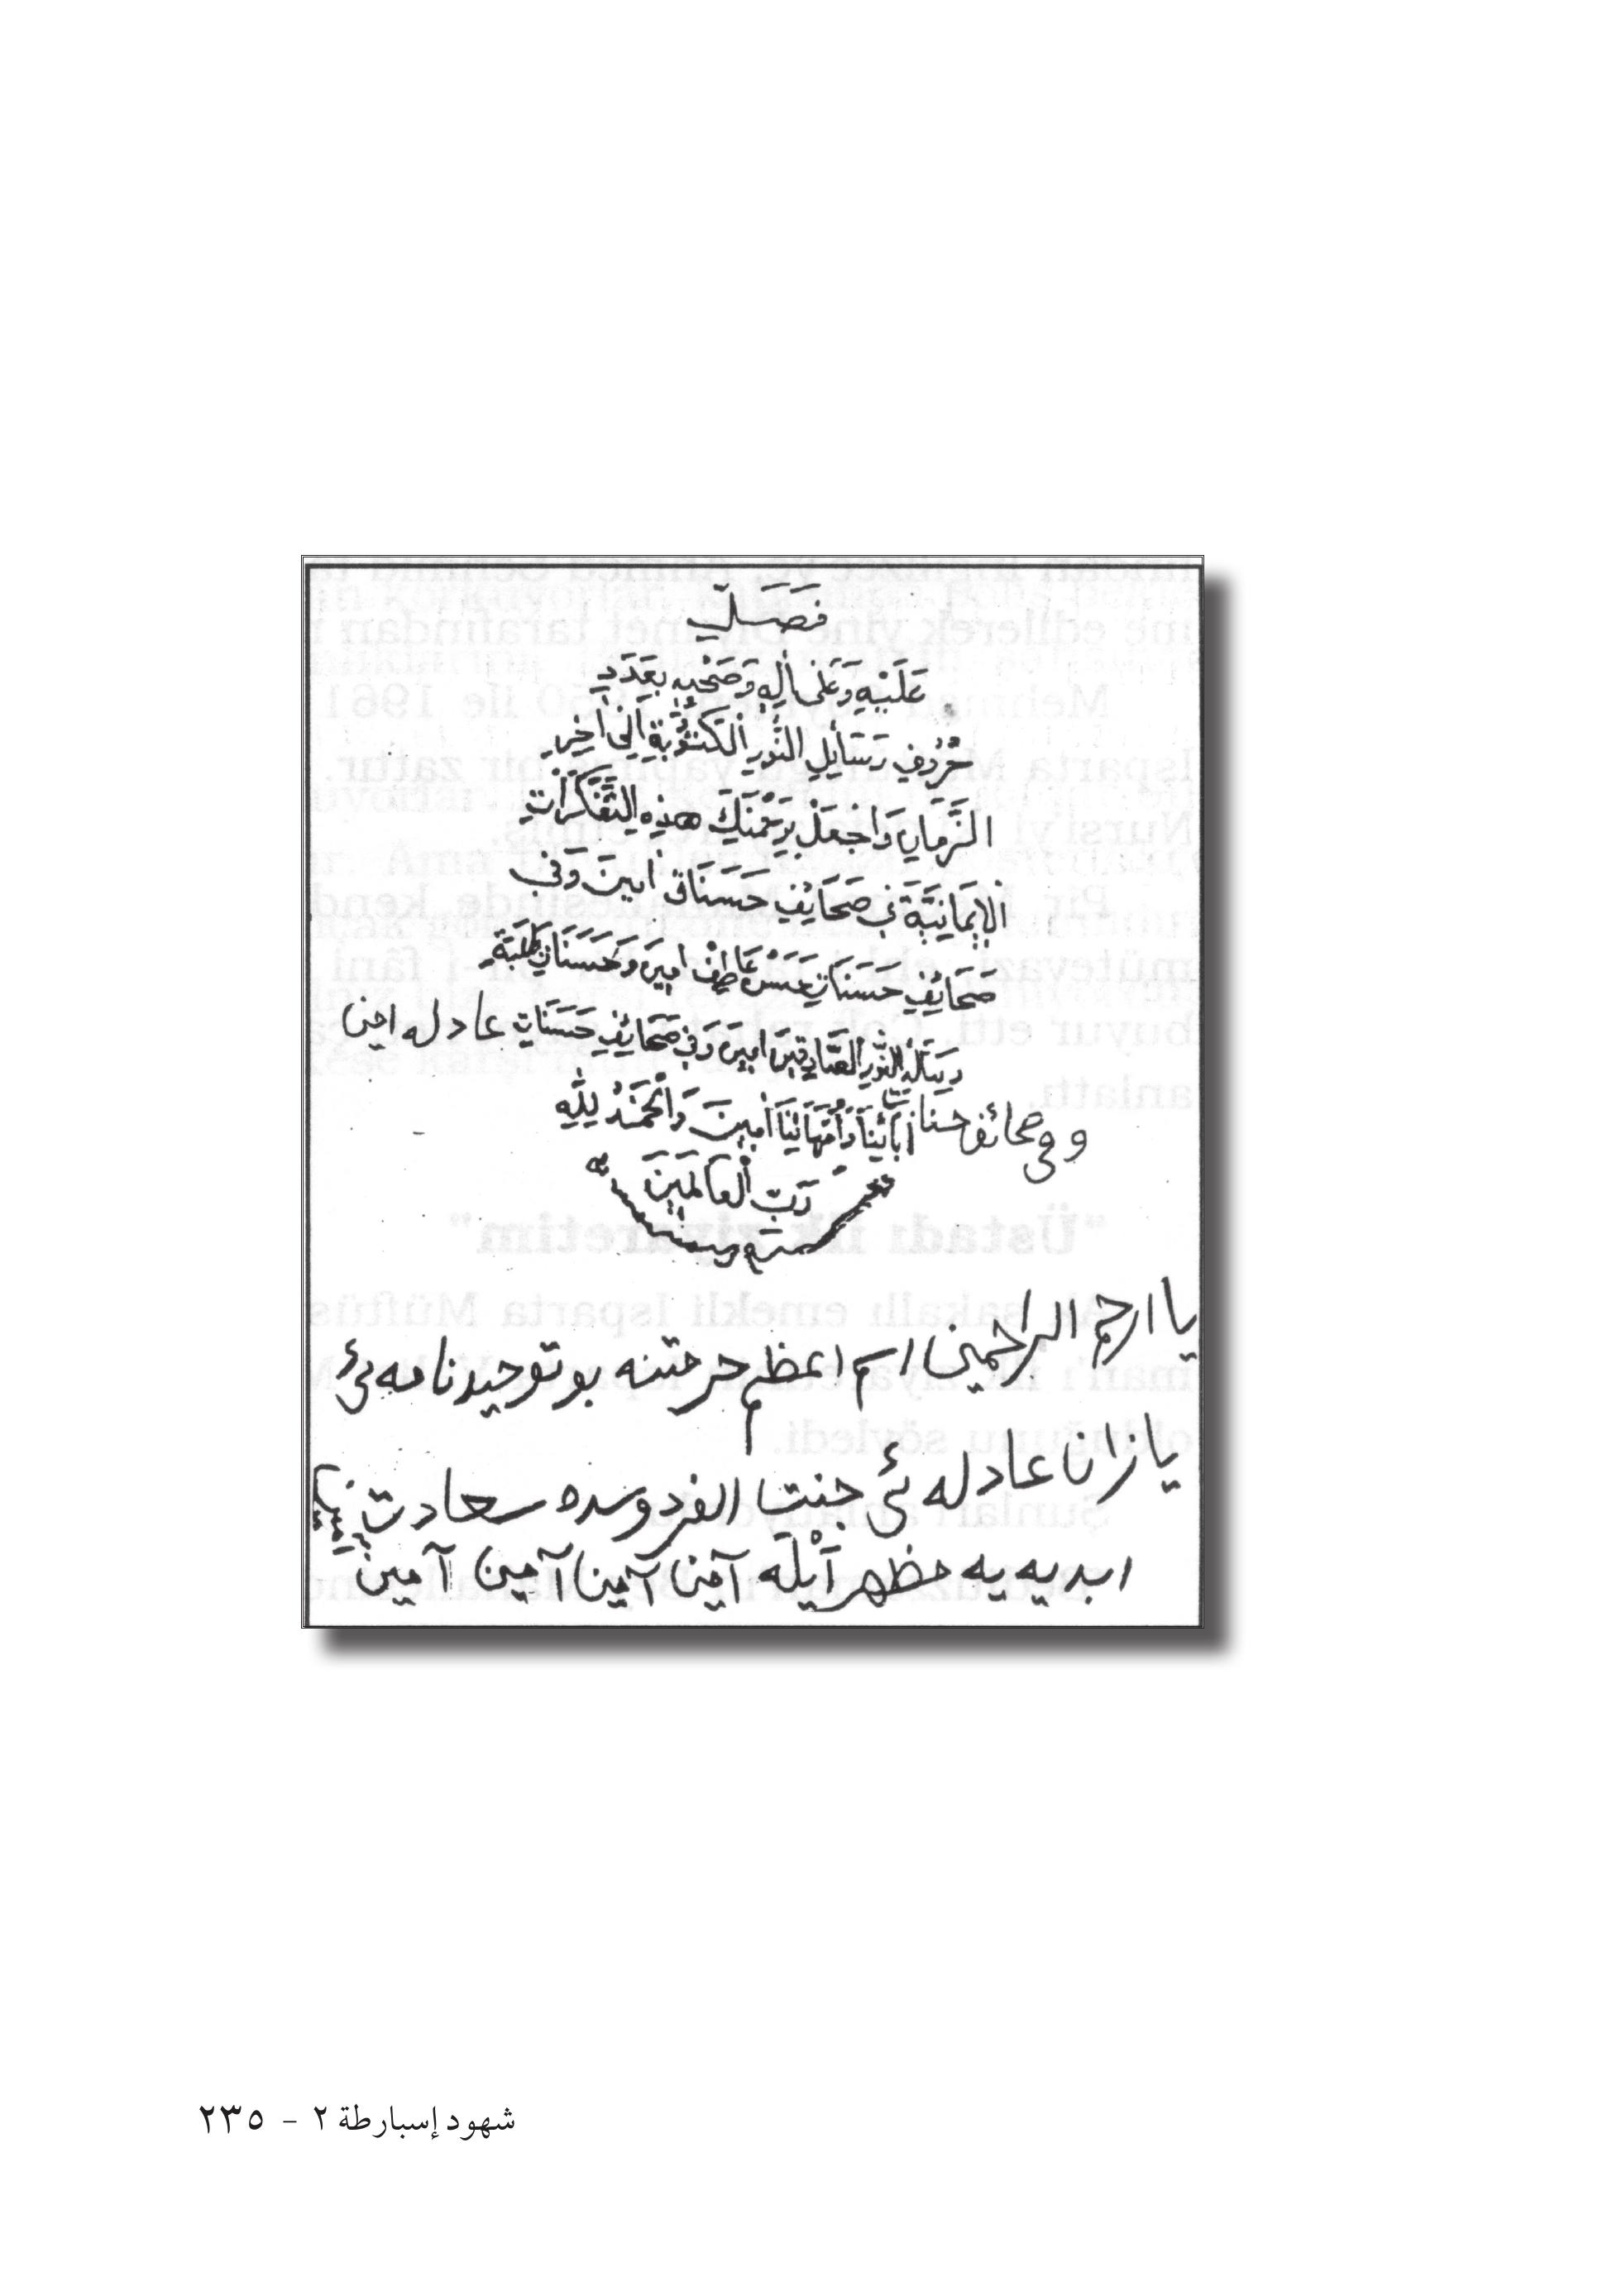 فَصَلِّ
عَلَيْهِ وَعَلَى اٰلِهِ وَصَحْبِهِ بِعَدَدِ
حُرُوفِ رَسَائِلِ النُّورِ الْمَكْتُوبَةِ اِلَى اٰخِرِ
الزَّمَانِ وَاجْعَلْ بِرَحْمَتِكَ هٰذِهِ التَّفَكُّرَاتِ
الْاِيمَانِيَّةَ فِي صَحَائِفِ حَسَنَاتِي اٰمِينَ وَفِي
صَحَائِفِ حَسَنَاتِ حَسَنْ عَاطِفْ اٰمِينَ وَحَسَنَاتِ طَلَبَةِ
رِسَالَةِ النُّورِ الصَّادِقِينَ اٰمِينَ وَفِي صَحَائِفِ حَسَنَاتِ عادله امين
و فى صحائف حسنات اٰبَائِنَا وَاُمَّهَاتِنَا اٰمِينَ وَالْحَمْدُ لِلّٰهِ
رَبِّ الْعَالَمِينَ
يا ارحم الراحمين اسم اعظم حرمتنه بو توحيدنامه ئى
يازان عادله ئى جنت الفردوسده سعادت
ابديه يه مظهر اَيْلَه آمين آمين آمين آمين
شهود إسبارطة ٢ - ٢٣٥